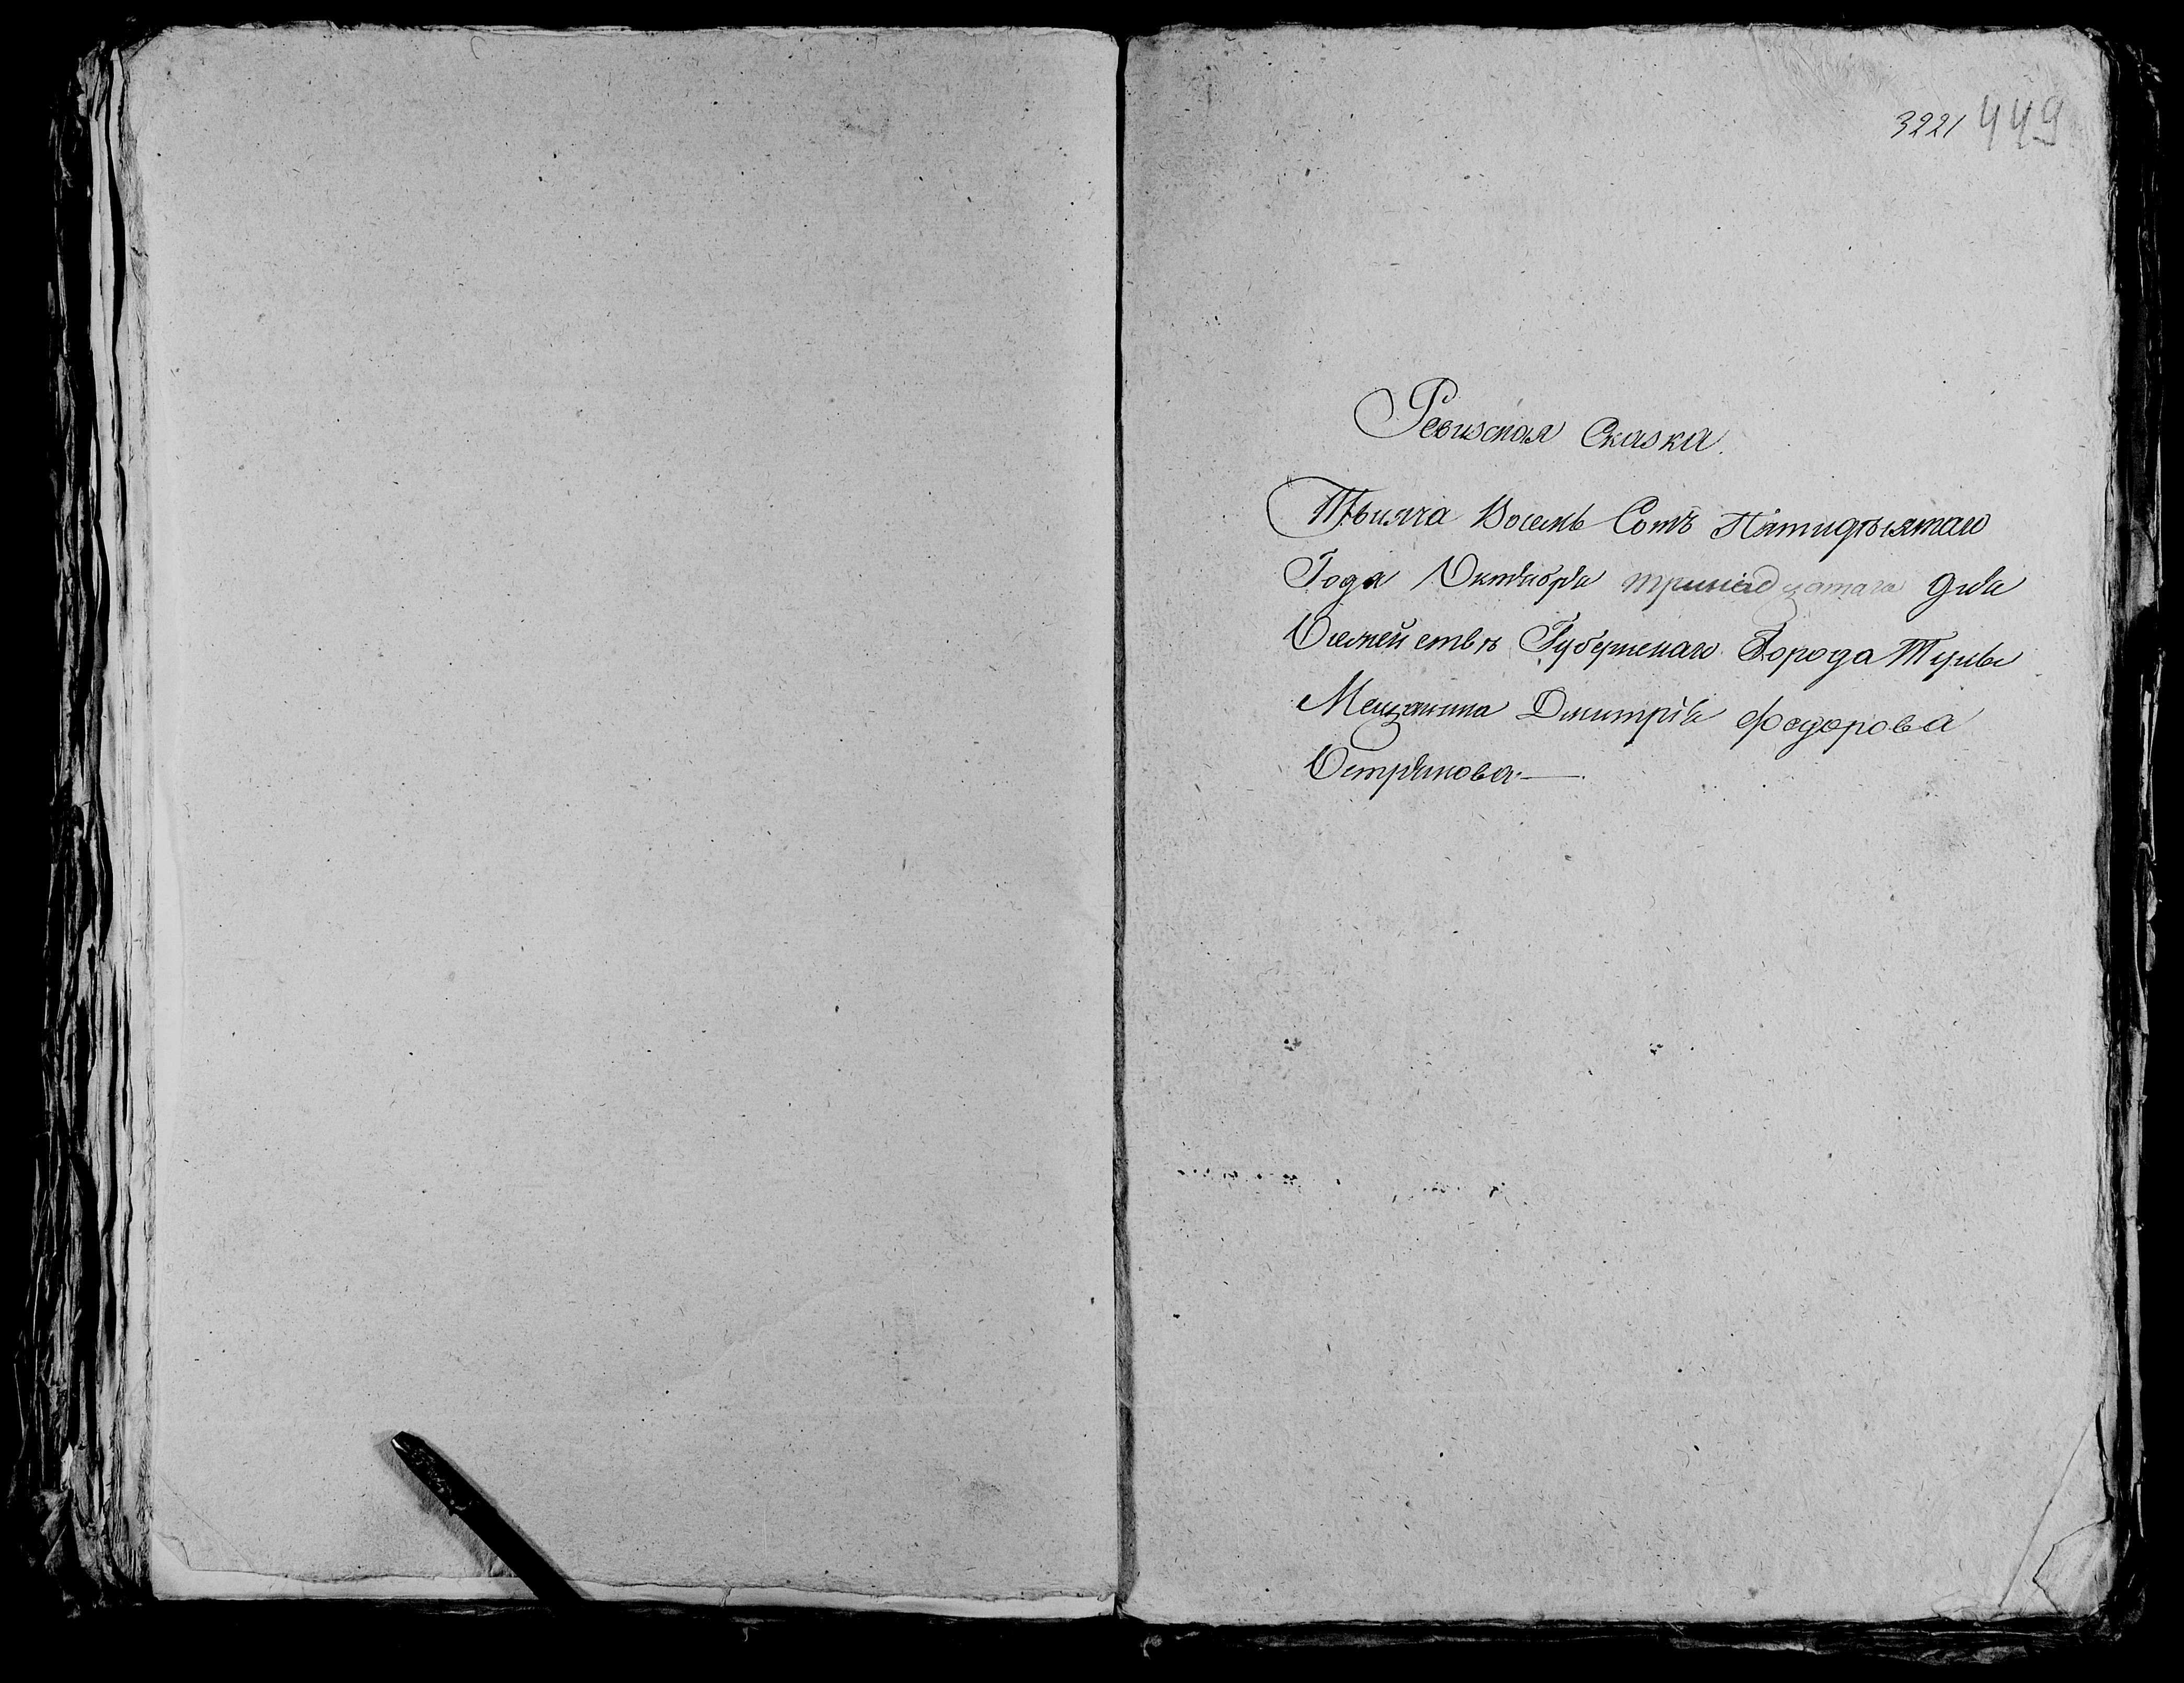 3221 449
Ревизская Сказка.
Тысяча Восемь Сотъ Пятидѣсятаго
Года Октября тринадцатаго дня
О семействѣ Губернскаго Города Тулы
Мещанина Дмитрія Федорова
Острякова.